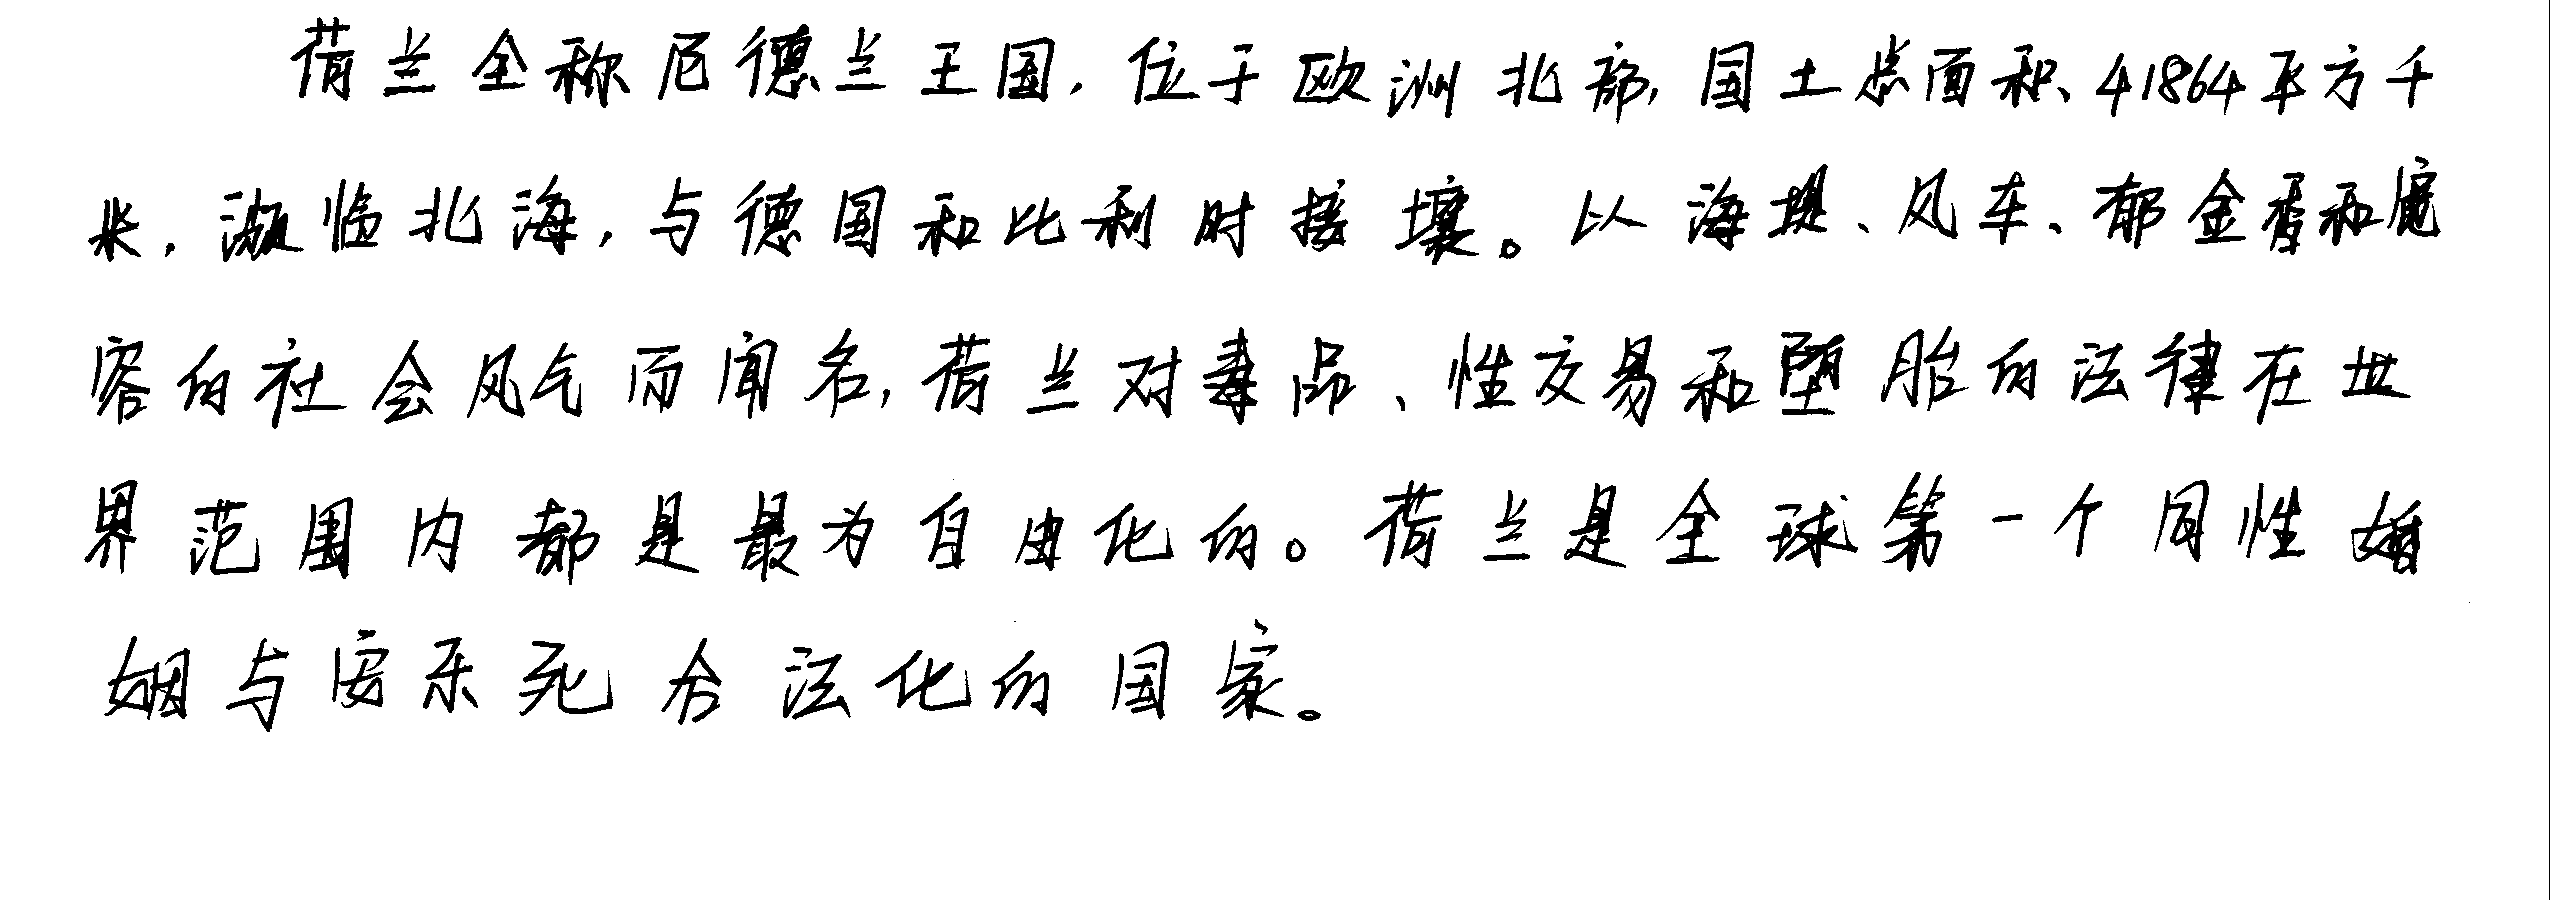 荷兰全称尼德兰王国,位于欧洲北部,国土总面积41864平方千
米,濒临北海,与德国和比利时接壤。以海堤、风车、郁金香和宽
容的社会风气而闻名,荷兰对毒品、性交易和堕胎的法律在世
界范围内都是最为自由化的。荷兰是全球第一个同性婚
姻与安乐死合法化的国家。